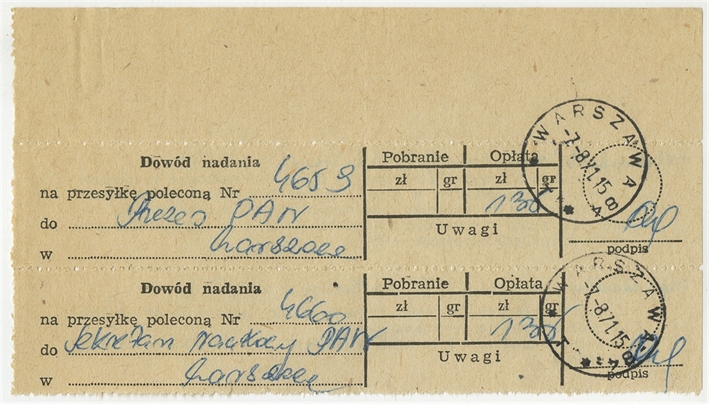 Dowód nadania
na przesyłkę poleconą Nr 4659
do Prezes PAN
w Warszawa
Pobranie Opłata
zł gr zł gr
Uwagi
podpis
WARSZAWA 48
-7.-8.71.15
Dowód nadania
na przesyłkę poleconą Nr 4660
do Sekretarz Naukowy PAN
w Warszawa
Pobranie Opłata
zł gr zł
Uwagi
podpis
WARSZAWA
-7.-8.71.15